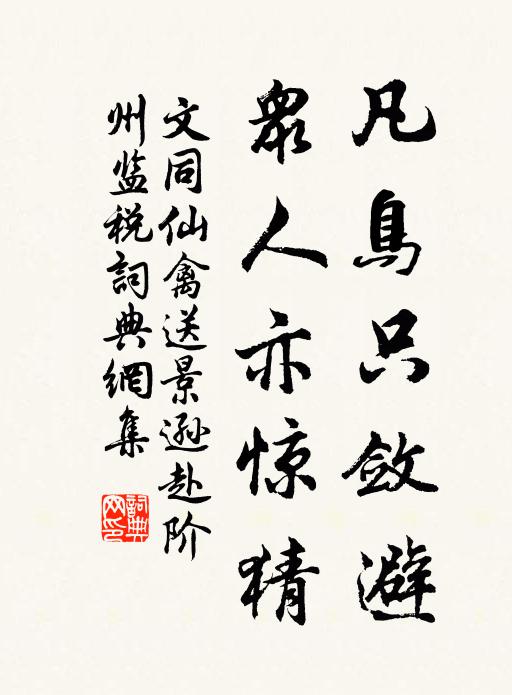 凡鳥只斂避
衆人亦惊猜
文同仙禽送景遜赴阶
州监税詞典網集
詞典网印